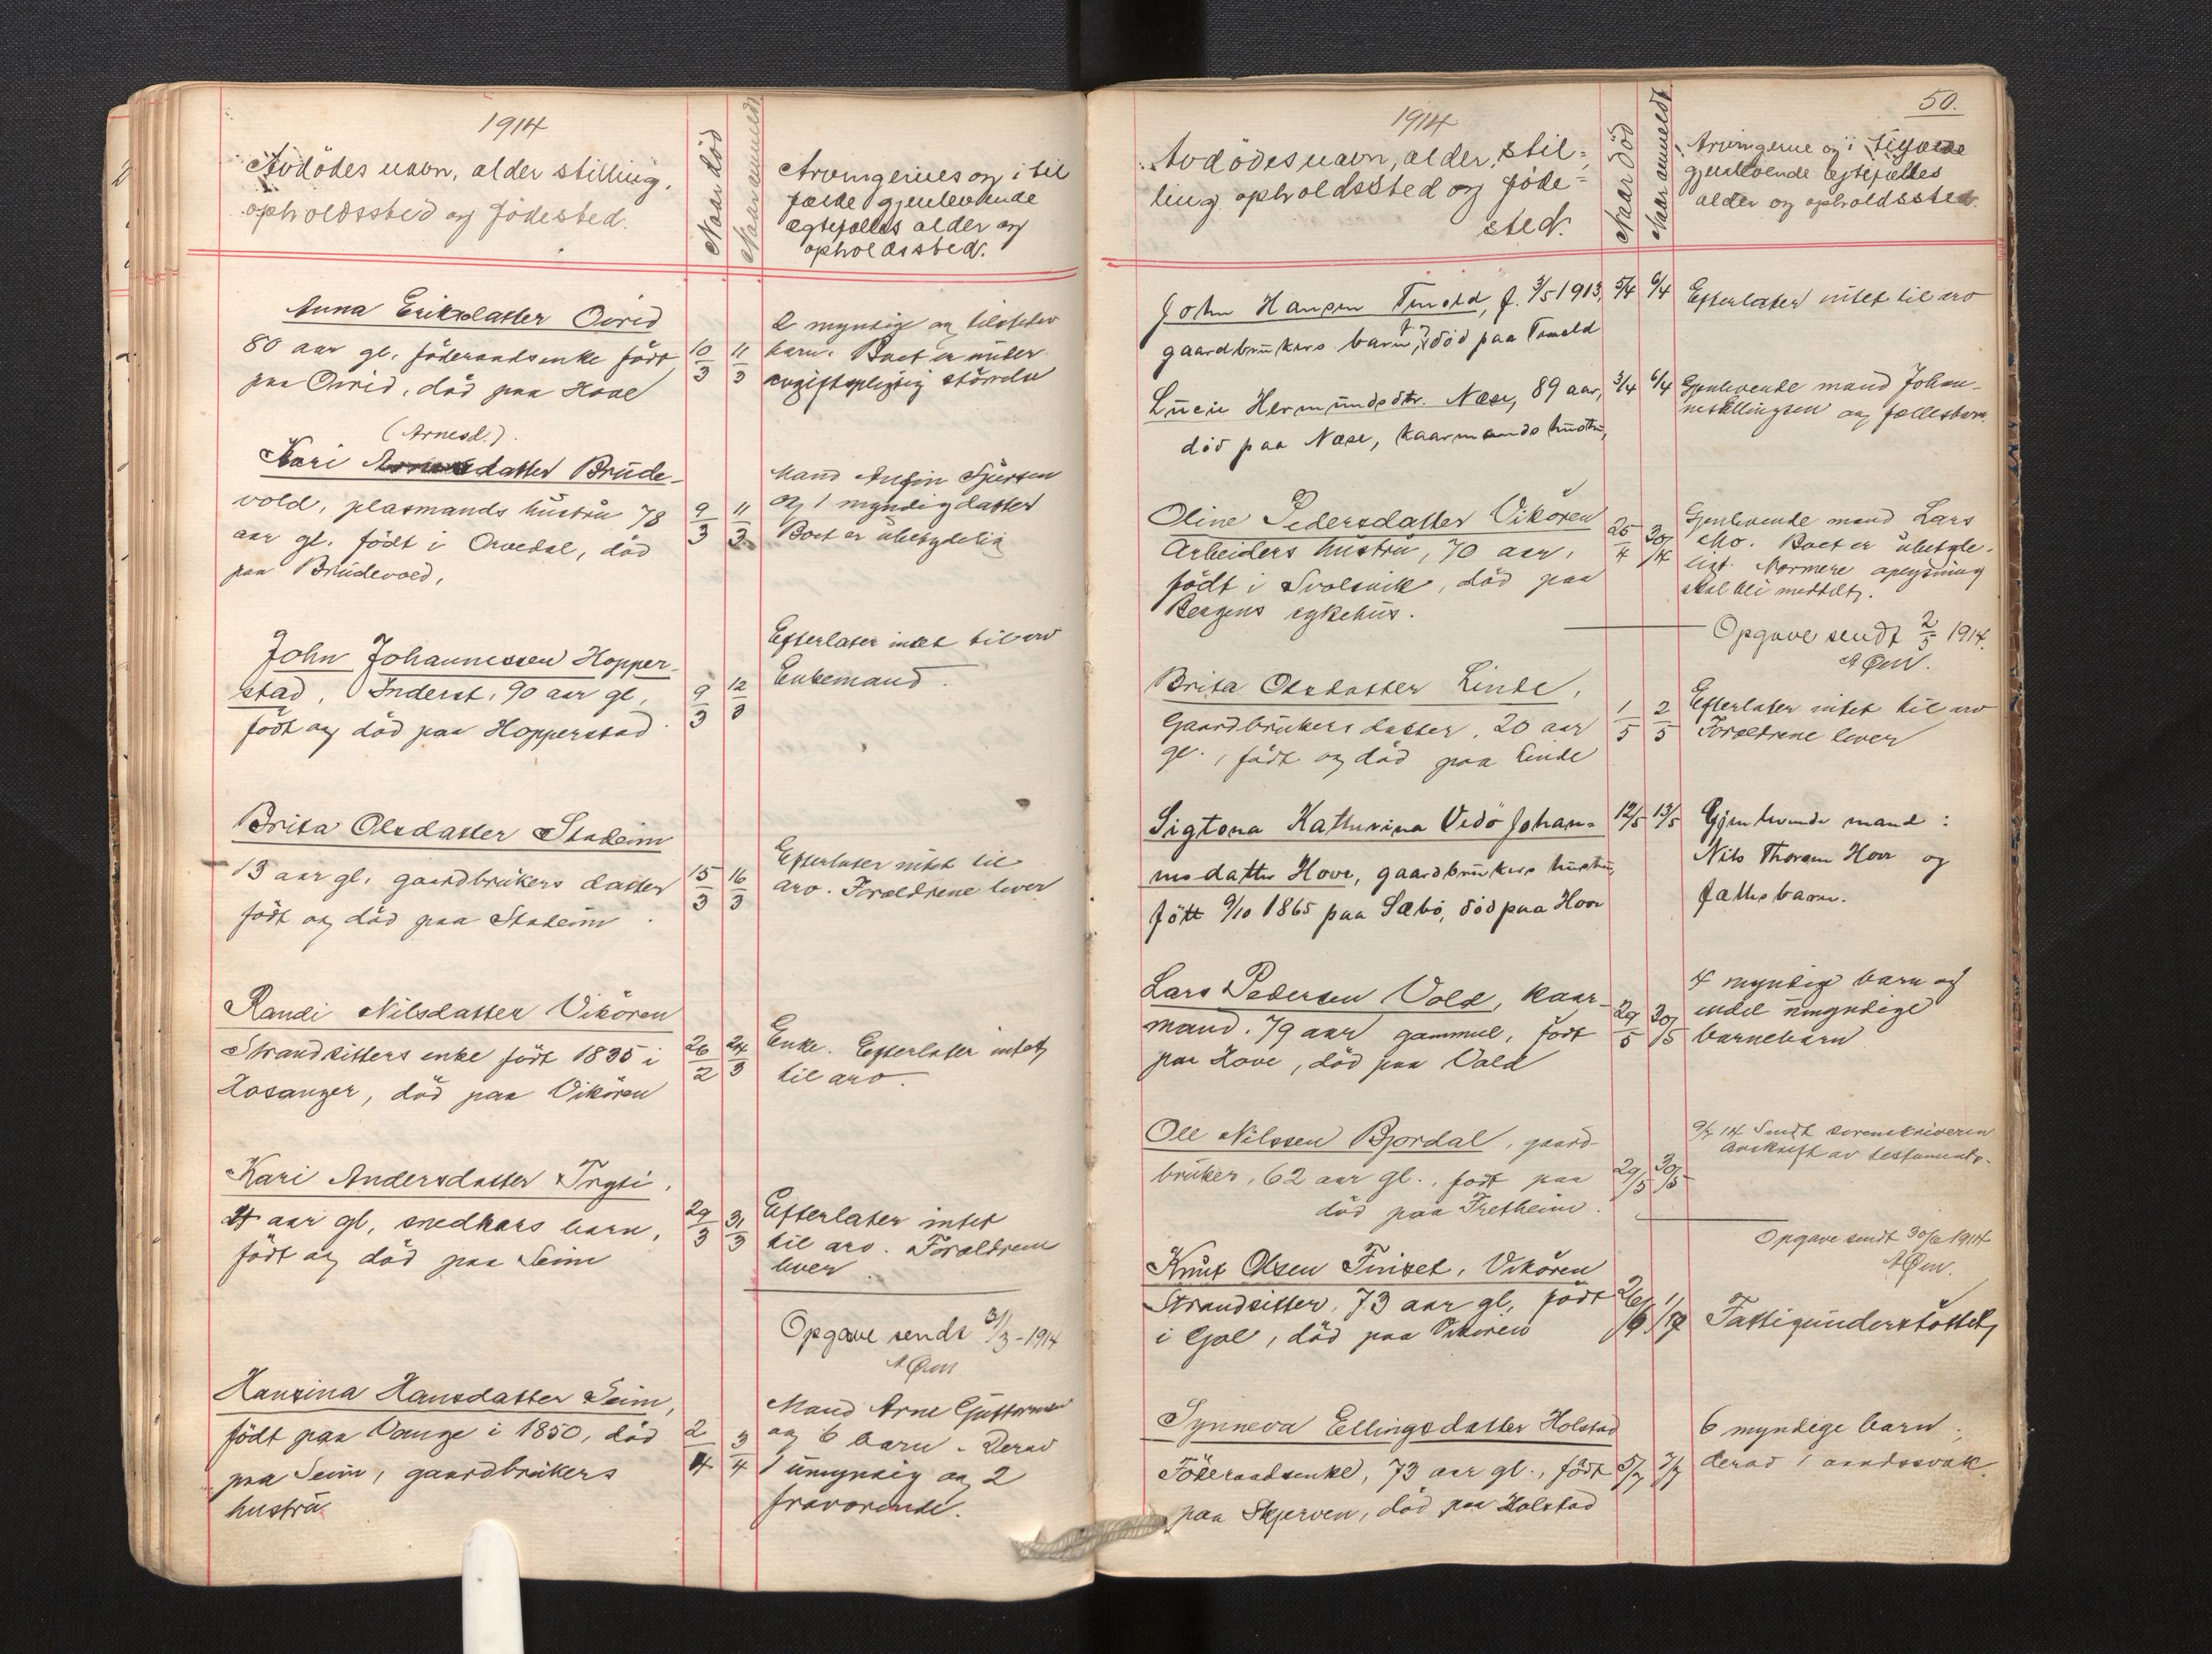 1914
Avdödes navn, alder stilling,
opholdssted og födested.
Naar död
Naar anmeldt
Arvingernes og i til
fælde gjenlevende
egtefælles alder og
opholdssted.
Anna Eriksdatter Övrid
80 aar gl. föderaadsenke födt
paa Övrid, död paa Hove
10/3
11/3
2 myndige og tilstede
barn. Boet er under
avgiftspligtig störrelse
(Arnesd.)
Kari datter Brude-
vold, plasmands hustru 78
aar gl. födt i Arvedal, död
paa Brudevold,
9/3
11/3
Mand Anfin Sjursen
og 1 myndig datter
Boet er ubetydelig
John Johannessen Hopper-
stad, Inderst, 90 aar gl,
födt og död paa Hopperstad
9/3
12/3
Efterlater intet til arv
Enkemand.
Brita Olsdatter Stadeim
13 aar gl. gaardbrukers datter
födt og död paa Stadeim.
15/3
16/3
Efterlater intet til
arv. Forældrene lever
Randi Nilsdatter Vikören
Strandsitters enke födt 1835 i
Hosanger, död paa Vikören
26/2
24/3
Enke. Efterlater intet
til arv.
Kari Andersdatter Tryti,
aar gl, snedkers barn,
födt og död paa Seim
29/3
31/3
Efterlater intet
til arv. Forældrene
lever
Opgave sendt 31/3-1914
AØen
Hansina Hansdatter Seim,
födt paa Vange i 1850, död
paa Seim, gaardbrukers
hustru
2/4
3/4
Mand Arne Guttormsen
og 6 barn. Derav
1 umyndig og 2
fraværende.
50.
1914
Avdödes navn, alder, stil-
ling opholdssted og föde-
sted.
Naar död
Naar anmeldt
Arvingerne og i tilfælde
gjenlevende egtefælles
alder og opholdssted.
John Hansen Tenold, f. 3/5 1913,
gaardbrukers barn, f. död paa Tenold
5/4
6/4
Efterlater intet til arv
Lucie Hermundsdtr. Nese, 89 aar,
död paa Nese, kaarmands hustru,
3/4
6/4
Gjenlevende mand Johan-
nes Ellingsen og fællesbarn.
Oline Pedersdatter Vikören
Arbeiders hustru, 70 aar,
födt i Svolsvik, död paa
Bergens sykehus.
25/4
30/4
Gjenlevende mand Lars
Mo. Boet er ubetyde-
ligt. Nærmere oplysning
skal bli meddelt.
Opgave sendt 2/5 1914.
AØen.
Brita Olsdatter Linde,
Gaardbrukers datter, 20 aar
gl., födt og död paa Linde
1/5
2/5
Efterlater intet til arv
Forældrene lever
Sigtona Katharina Vedö Johan-
nesdatter Hove, gaardbrukers hustru,
födt 9/10 1865 paa Sæbö, död paa Hove
12/5
13/5
Gjenlevende mand:
Nils Thorsen Hove og
fællesbarn.
Lars Pedersen Vold, kaar-
mand. 79 aar gammel, födt
paa Hove, död paa Vold
29/5
30/5
4 myndige barn og
endel umyndige
barnebarn
Ole Nilssen Bjordal, gaard-
bruker, 62 aar gl., födt paa
död paa Fretheim.
29/5
30/5
9/7 14 Sendt sorenskriveren
avskrift av testamente.
Opgave sendt 30/6 1914
AØen.
Knut Olsen Finset, Vikören
Strandsitter, 73 aar gl, födt
i Gol, död paa Vikören
26/6
1/7
Fattigunderstöttet
Synneva Ellingsdatter Holstad
Föderaadsenke, 73 aar gl., födt
paa Skjerven, död paa Holstad
5/7
7/7
6 myndige barn,
derav 1 aandssvak.